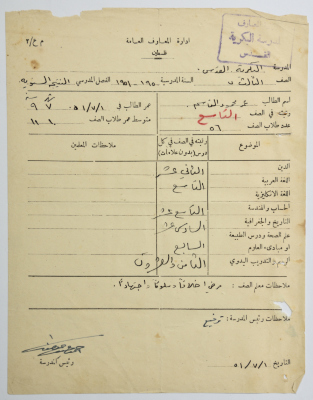 ادارة المعارف العامة
فلسطين
م ع/٢
المعارف
المدرسة البكرية
القدس
المدرسة البكرية القدس
الصف الثالث السنة المدرسية ١٩٥٠ - ١٩٥١ الفصل المدرسي النتيجة السنوية
اسم الطالب عمر محمود القاسم عمر الطالب في ٥١/٧/١ ٧ ٩
رتبته في الصف التاسع متوسط عمر طلاب الصف ١٠
عدد طلاب الصف ٥٦
الموضوع رتبته في الصف في كل درس (بدون علامات) ملاحظات المعلمين
الدين الثاني عشر
اللغة العربية التاسع
اللغة الانكليزية
الحساب والهندسة التاسع عشر
التاريخ والجغرافية السادس عشر
علم الصحة ودرس الطبيعة
او مبادىء العلوم السابع
الرسم والتدريب اليدوي الثامن والعشرون
ملاحظات معلم الصف : مرضي اخلاقاً وسلوكاً واجتهاداً
ملاحظات رئيس المدرسة :
رئيس المدرسة
التاريخ ٥١/٧/١